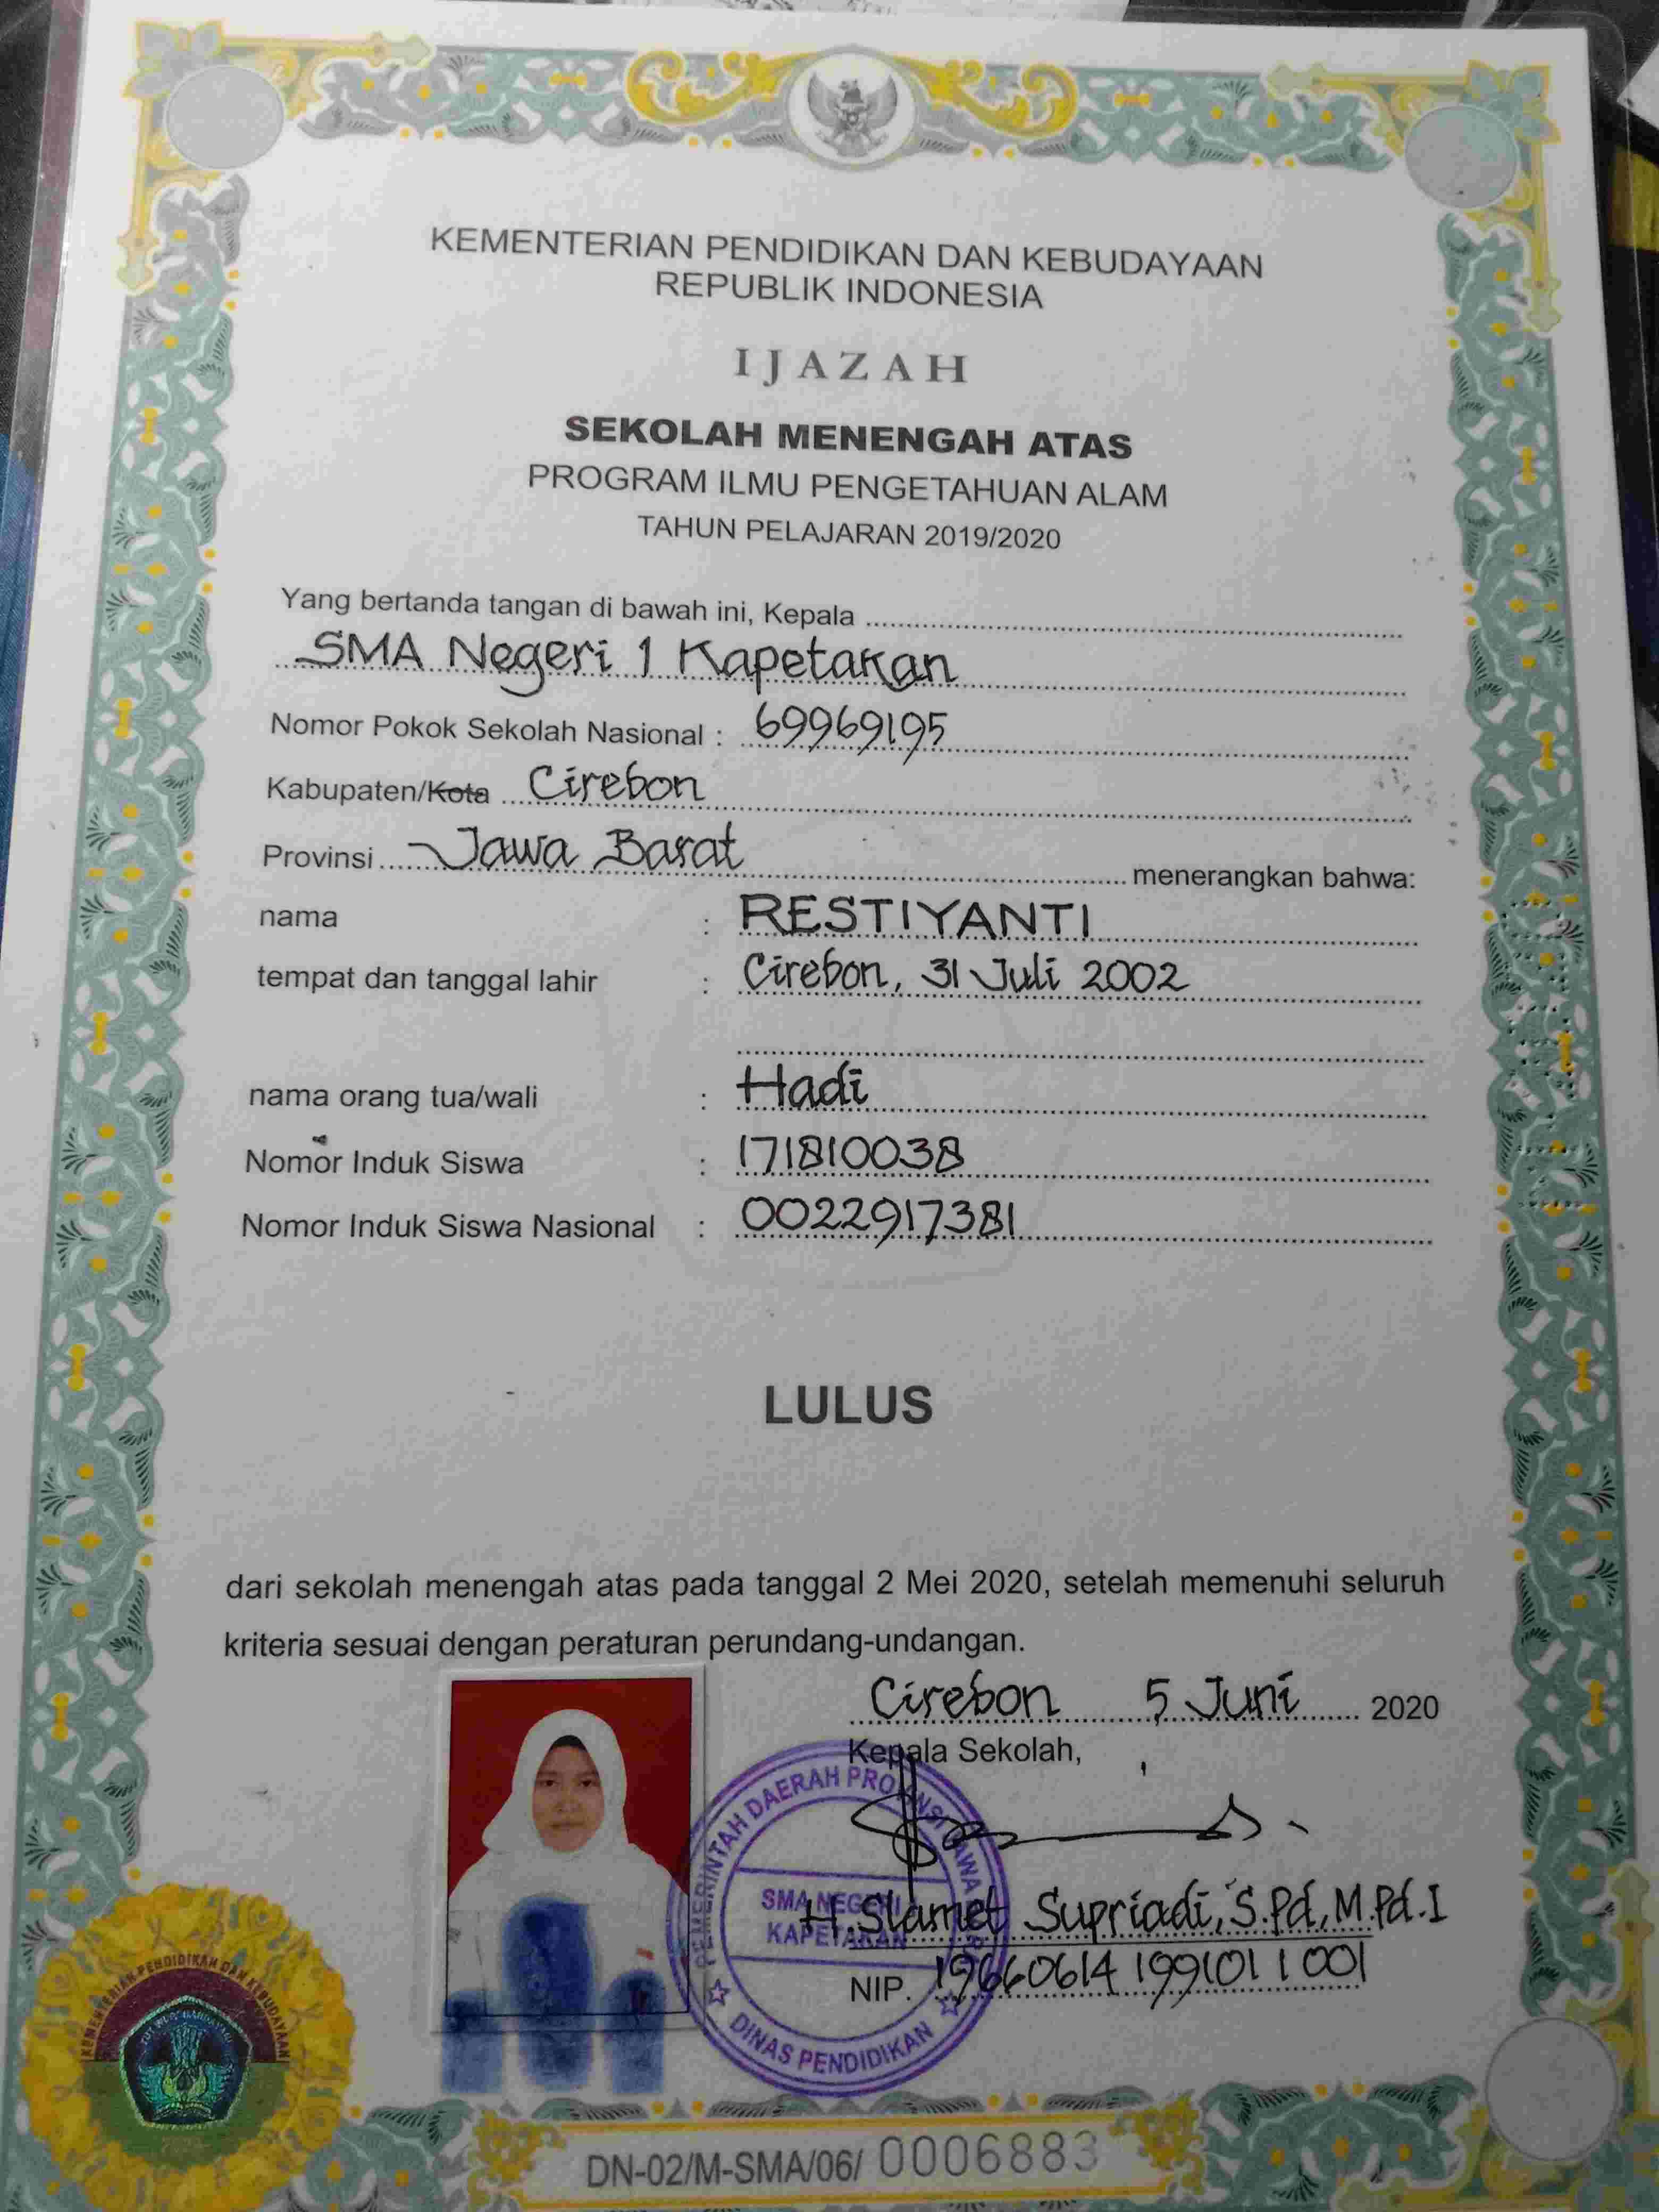 KEMENTERIAN PENDIDIKAN DAN KEBUDAYAAN
REPUBLIK INDONESIA
IJAZAH
SEKOLAH MENENGAH ATAS
PROGRAM ILMU PENGETAHUAN ALAM
TAHUN PELAJARAN 2019/2020
Yang bertanda tangan di bawah ini, Kepala
SMA Negeri 1 Kapetakan
Nomor Pokok Sekolah Nasional : 69969195
Kabupaten/Kota Cirebon
Provinsi Jawa Barat menerangkan bahwa:
nama : RESTIYANTI
tempat dan tanggal lahir : Cirebon, 31 Juli 2002
nama orang tua/wali : Hadi
Nomor Induk Siswa : 171810038
Nomor Induk Siswa Nasional : 0022917381
LULUS
dari sekolah menengah atas pada tanggal 2 Mei 2020, setelah memenuhi seluruh
kriteria sesuai dengan peraturan perundang-undangan.
Cirebon 5 Juni 2020
Kepala Sekolah,
PEMERINTAH DAERAH PROVINSI JAWA
SMA NEGERI
KAPETAKAN
DINAS PENDIDIKAN
H. Slamet Supriadi, S.Pd, M.Pd.I
NIP. 19660614 199101 1 001
KEMENTERIAN PENDIDIKAN DAN KEBUDAYAAN
TUT WURI HANDAYANI
DN-02/M-SMA/06/ 0006883